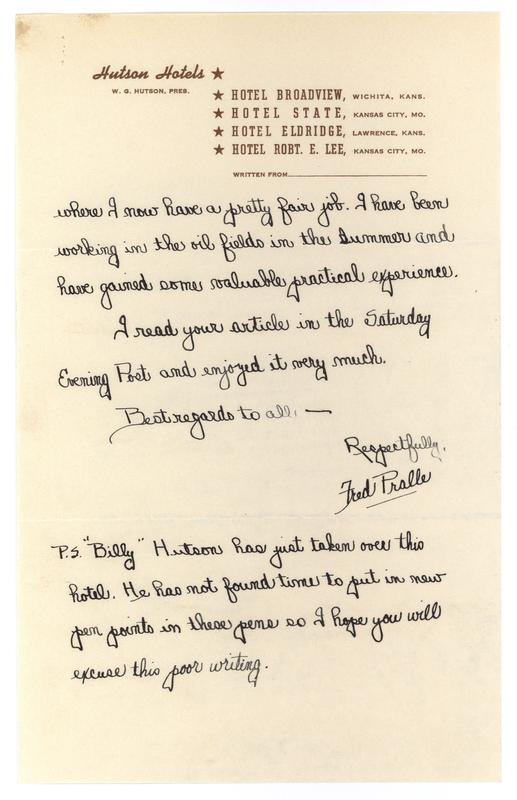 Hutson Hotels ★
W. G. HUTSON, PRES.
★ HOTEL BROADVIEW, WICHITA, KANS.
★ HOTEL STATE, KANSAS CITY, MO.
★ HOTEL ELDRIDGE, LAWRENCE, KANS.
★ HOTEL ROBT. E. LEE, KANSAS CITY, MO.
WRITTEN FROM
where I now have a pretty fair job. I have been
working in the oil fields in the Summer and
have gained some valuable practical experience.
I read your article in the Saturday
Evening Post and enjoyed it very much.
Best regards to all. —
Respectfully,
Fred Pralle
P.S. "Billy" Hutson has just taken over this
hotel. He has not found time to put in new
pen points in these pens so I hope you will
excuse this poor writing.